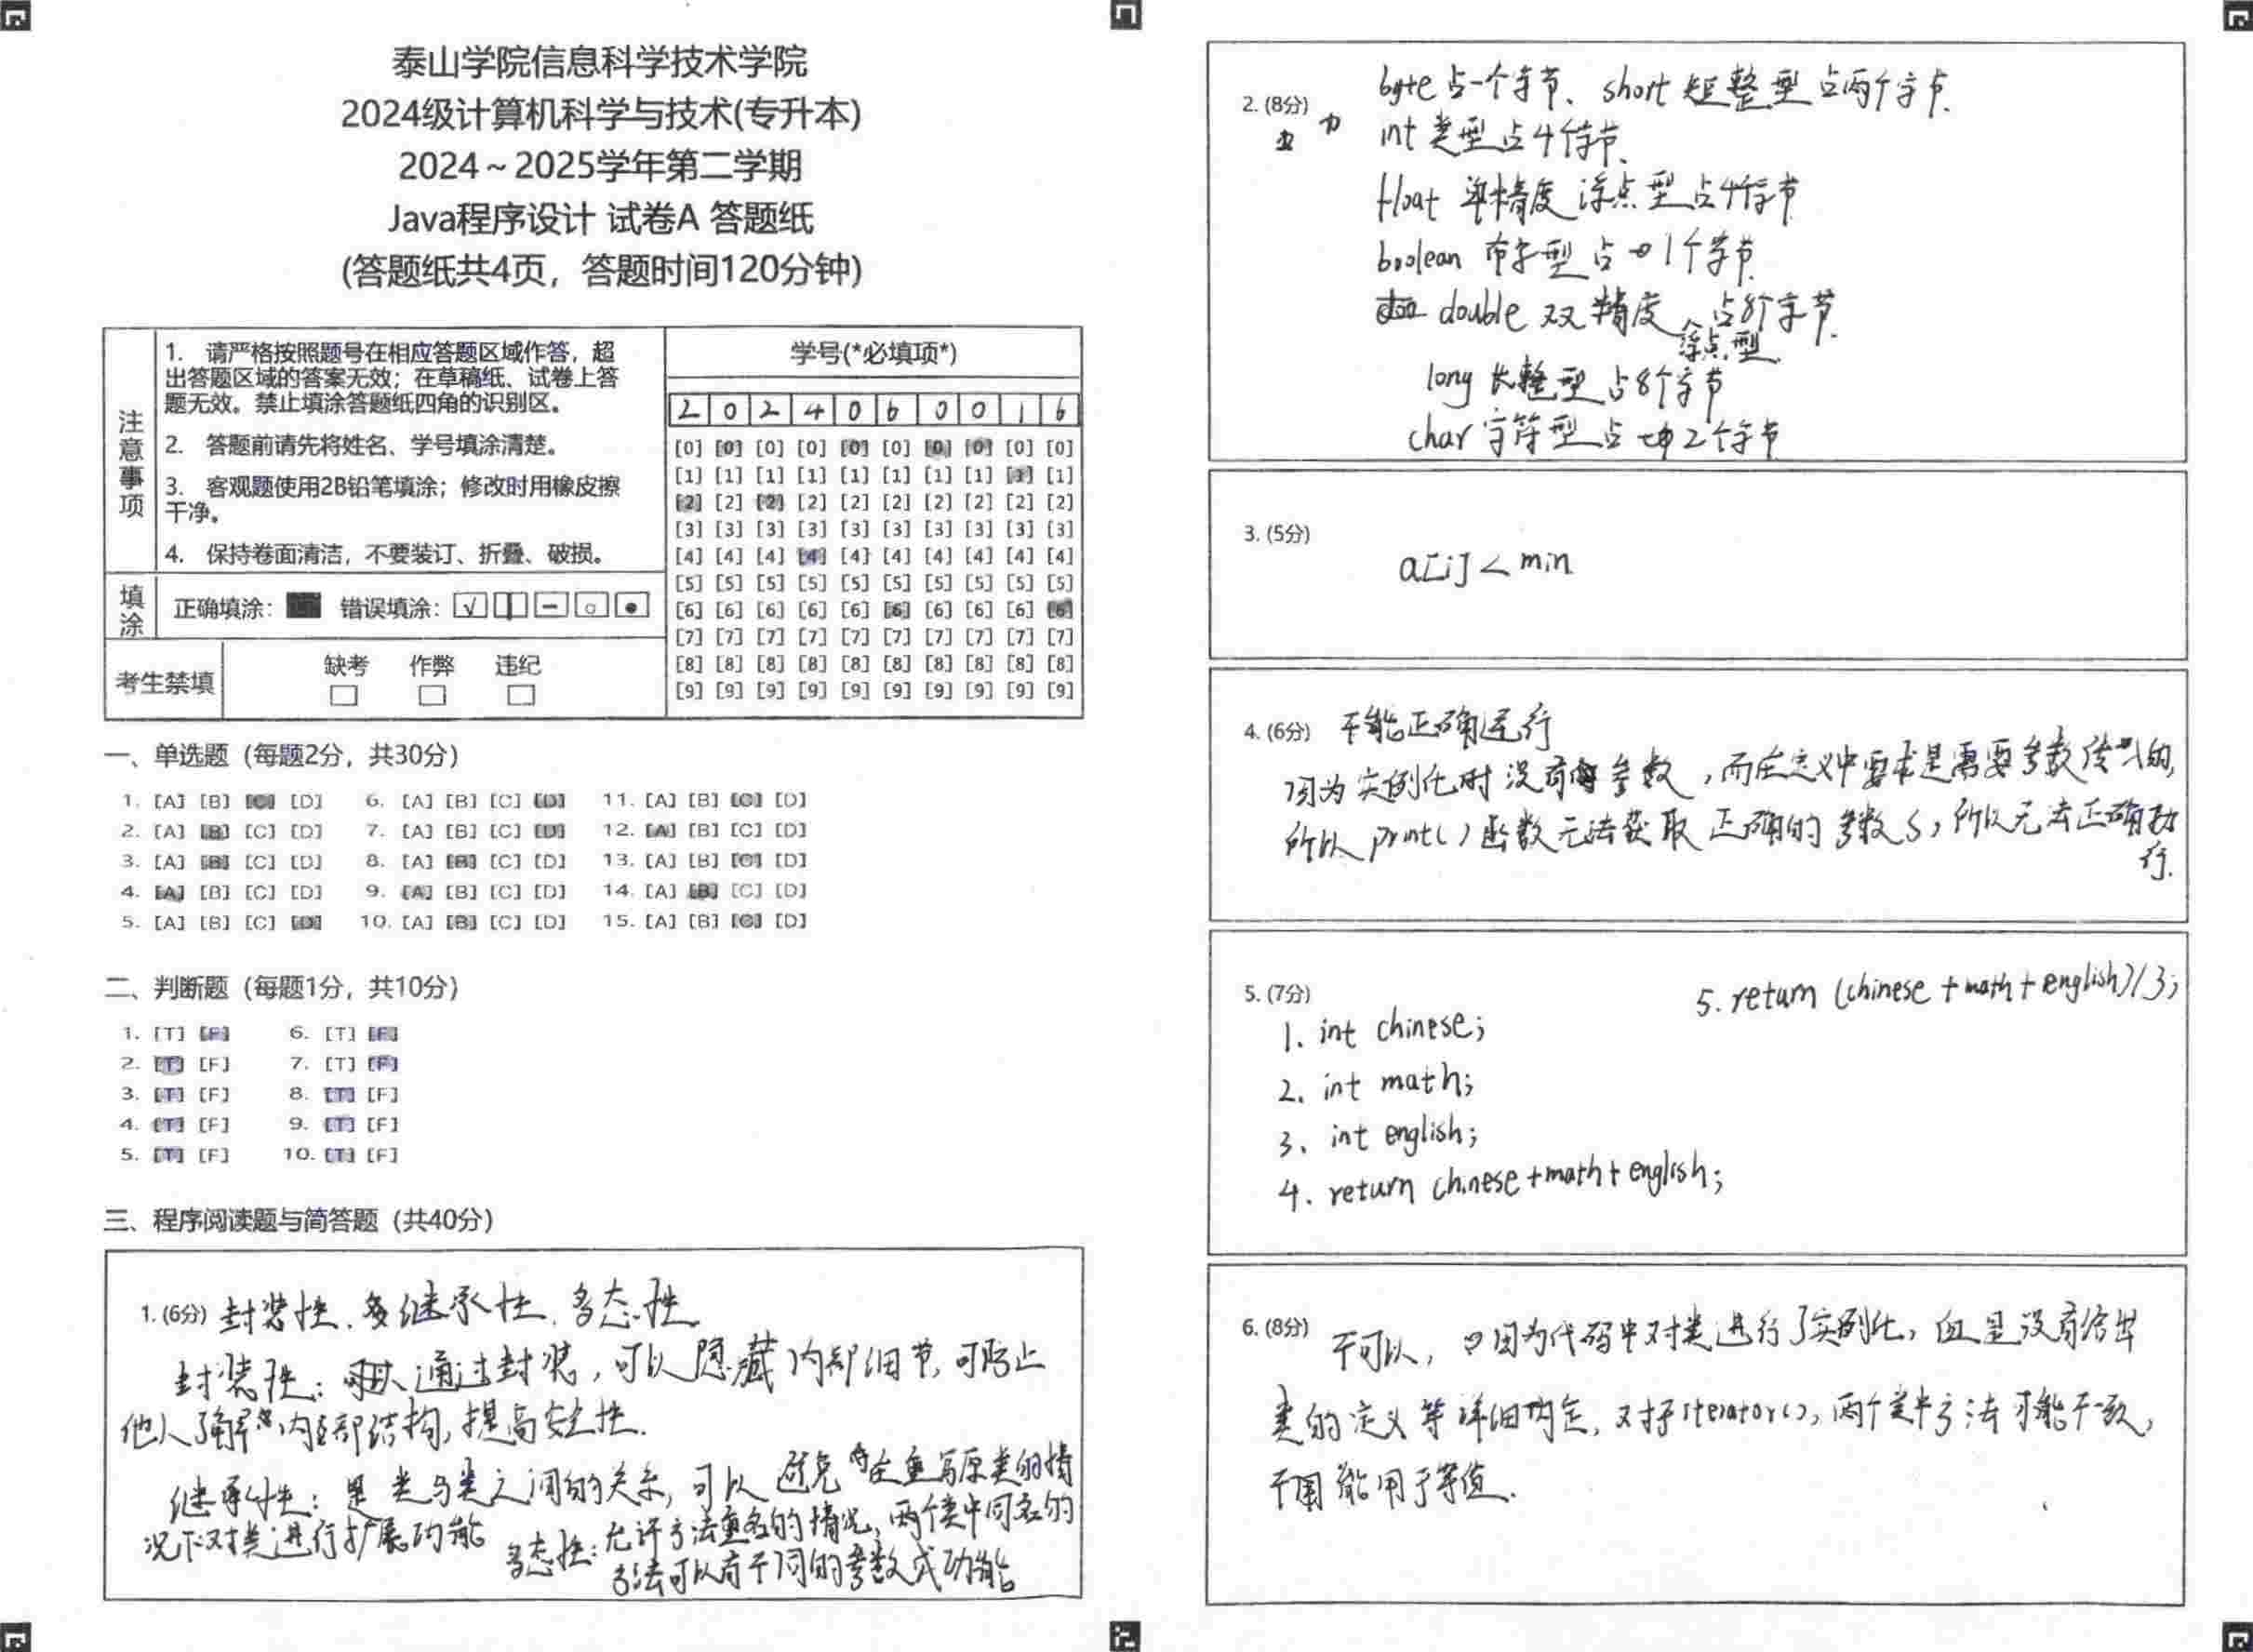 泰山学院信息科学技术学院
2024级计算机科学与技术(专升本)
2024～2025学年第二学期
Java程序设计 试卷A 答题纸
(答题纸共4页，答题时间120分钟)
注意事项
1. 请严格按照题号在相应答题区域作答，超
出答题区域的答案无效；在草稿纸、试卷上答
题无效。禁止填涂答题纸四角的识别区。
2. 答题前请先将姓名、学号填涂清楚。
3. 客观题使用2B铅笔填涂；修改时用橡皮擦
干净。
4. 保持卷面清洁，不要装订、折叠、破损。
填涂
正确填涂： 错误填涂：
考生禁填
缺考 作弊 违纪
学号(*必填项*)
2 0 2 4 0 6 0 0 1 6
[0] [0] [0] [0] [0] [0] [0] [0] [0] [0]
[1] [1] [1] [1] [1] [1] [1] [1] [1] [1]
[2] [2] [2] [2] [2] [2] [2] [2] [2] [2]
[3] [3] [3] [3] [3] [3] [3] [3] [3] [3]
[4] [4] [4] [4] [4] [4] [4] [4] [4] [4]
[5] [5] [5] [5] [5] [5] [5] [5] [5] [5]
[6] [6] [6] [6] [6] [6] [6] [6] [6] [6]
[7] [7] [7] [7] [7] [7] [7] [7] [7] [7]
[8] [8] [8] [8] [8] [8] [8] [8] [8] [8]
[9] [9] [9] [9] [9] [9] [9] [9] [9] [9]
一、单选题（每题2分，共30分）
1. [A] [B] [C] [D] 6. [A] [B] [C] [D] 11. [A] [B] [C] [D]
2. [A] [B] [C] [D] 7. [A] [B] [C] [D] 12. [A] [B] [C] [D]
3. [A] [B] [C] [D] 8. [A] [B] [C] [D] 13. [A] [B] [C] [D]
4. [A] [B] [C] [D] 9. [A] [B] [C] [D] 14. [A] [B] [C] [D]
5. [A] [B] [C] [D] 10. [A] [B] [C] [D] 15. [A] [B] [C] [D]
二、判断题（每题1分，共10分）
1. [T] [F] 6. [T] [F]
2. [T] [F] 7. [T] [F]
3. [T] [F] 8. [T] [F]
4. [T] [F] 9. [T] [F]
5. [T] [F] 10. [T] [F]
三、程序阅读题与简答题（共40分）
1. (6分) 封装性、继承性、多态性
封装性：通过封装，可以隐藏内部细节，可防止
他人了解内部结构，提高安全性.
继承性：是类与类之间的关系，可以避免在重写原类的情
况下对类进行扩展功能
多态性：允许方法重名的情况，两个类中同名的
方法可以有不同的参数或功能
2. (8分)
byte 占一个字节、short 短整型占两个字节.
int 类型占4个字节.
float 单精度浮点型占4个字节
boolean 布尔型占1个字节.
double 双精度浮点型占8个字节.
long 长整型占8个字节
char 字符型占2个字节
3. (5分)
a[i] < min
4. (6分) 不能正确运行
因为实例化时没有参数，而在定义中要求是需要参数传入的，
所以print()函数无法获取正确的参数s，所以无法正确执
行.
5. (7分)
1. int chinese;
2. int math;
3. int english;
4. return chinese+math+english;
5. return (chinese+math+english)/3;
6. (8分) 不可以，因为代码中对类进行了实例化，但是没有给出
类的定义等详细内定，对于iterator()，两个类中方法可能不一致，
不能用于等值.